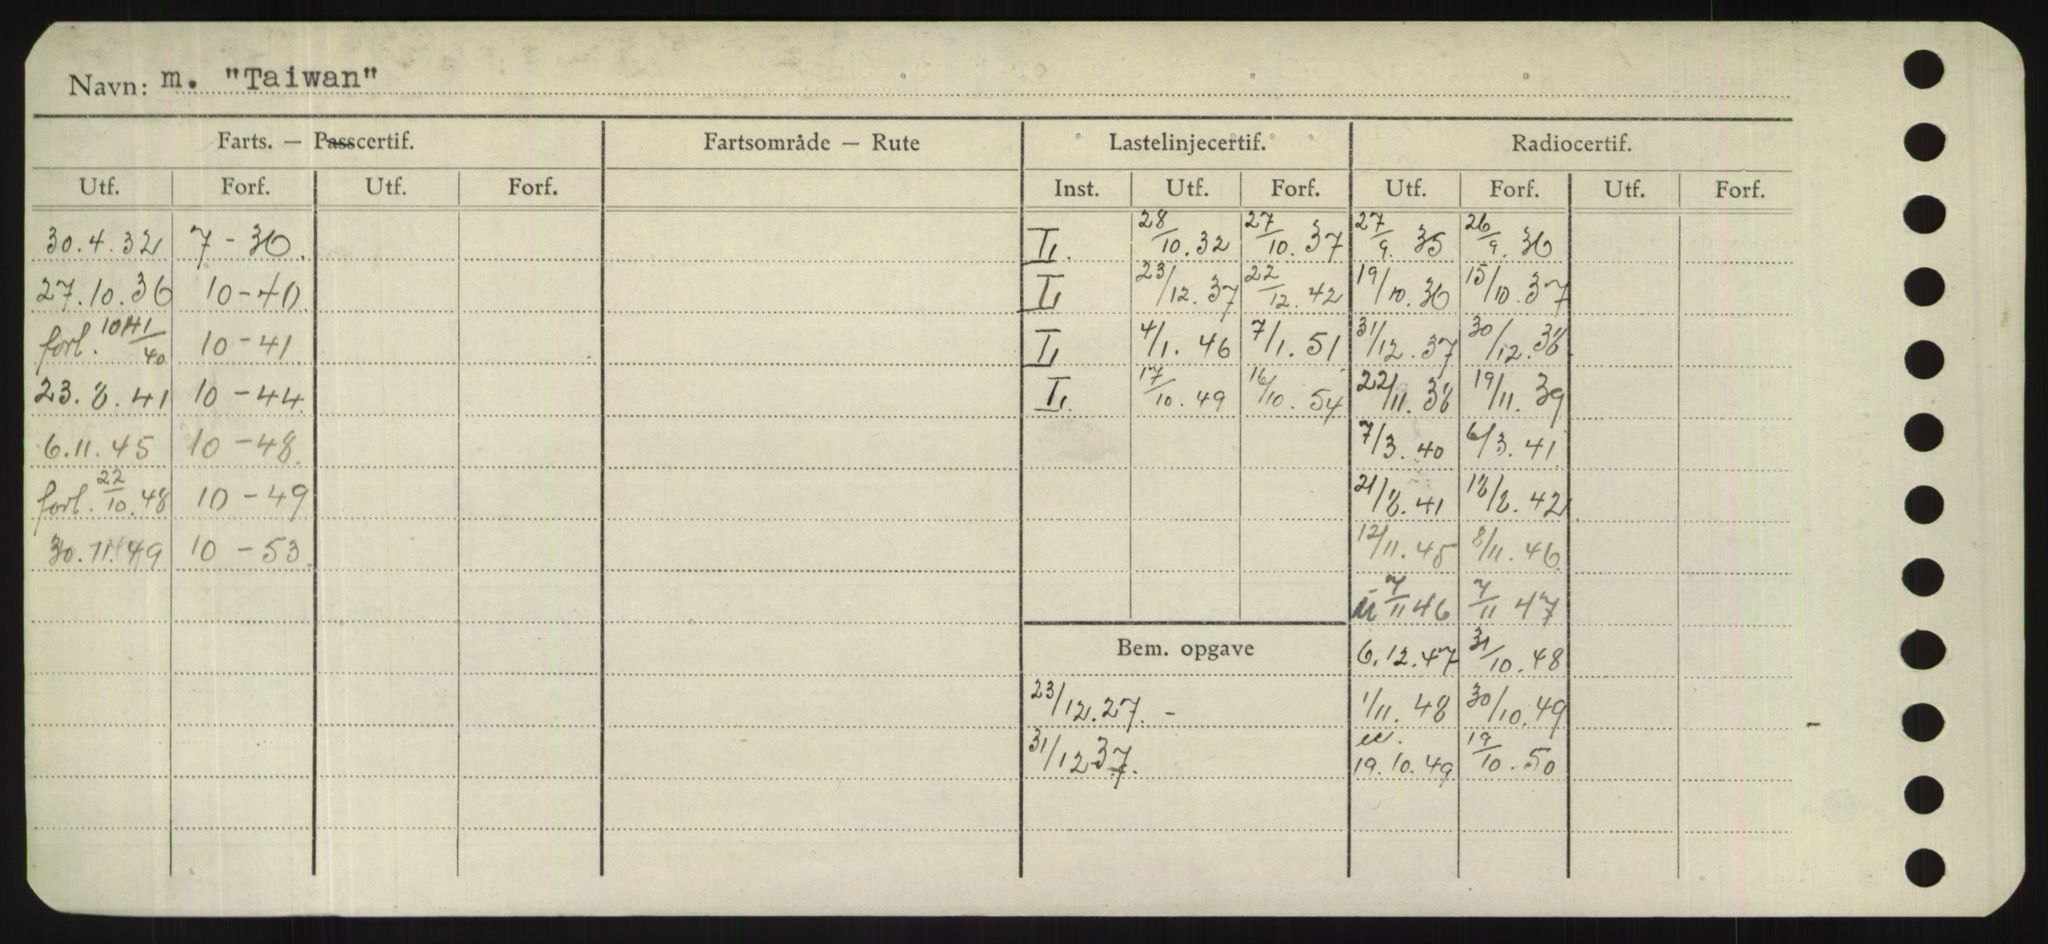 Navn: m. "Taiwan"
Farts. — Passcertif. Fartsområde — Rute Lastelinjecertif. Radiocertif.
Utf. Forf. Utf. Forf. Inst. Utf. Forf. Utf. Forf. Utf. Forf.
30.4.32 7-36. I. 28/10.32 27/10.37 27/9.35 26/9.36
27.10.36 10-40. I 23/12.37 22/12.42 19/10.36 15/10.37
forl. 10-41 I 4/1.46 7/1.51 31/12.37 30/12.38
23.8.41 10-44 I. 17/10.49 16/10.54 22/11.38 19/11.39
6.11.45 10-48. 7/3.40 6/3.41
forl. 22/10.48 10-49 21/8.41 18/8.42
30.11.49 10-53. 12/11.45 8/11.46
7/11 46 7/11 47
Bem. opgave 6.12.47 31/10.48
23/12.27. - 1/11.48 30/10.49
31/12 37. 19.10.49 19/10.50